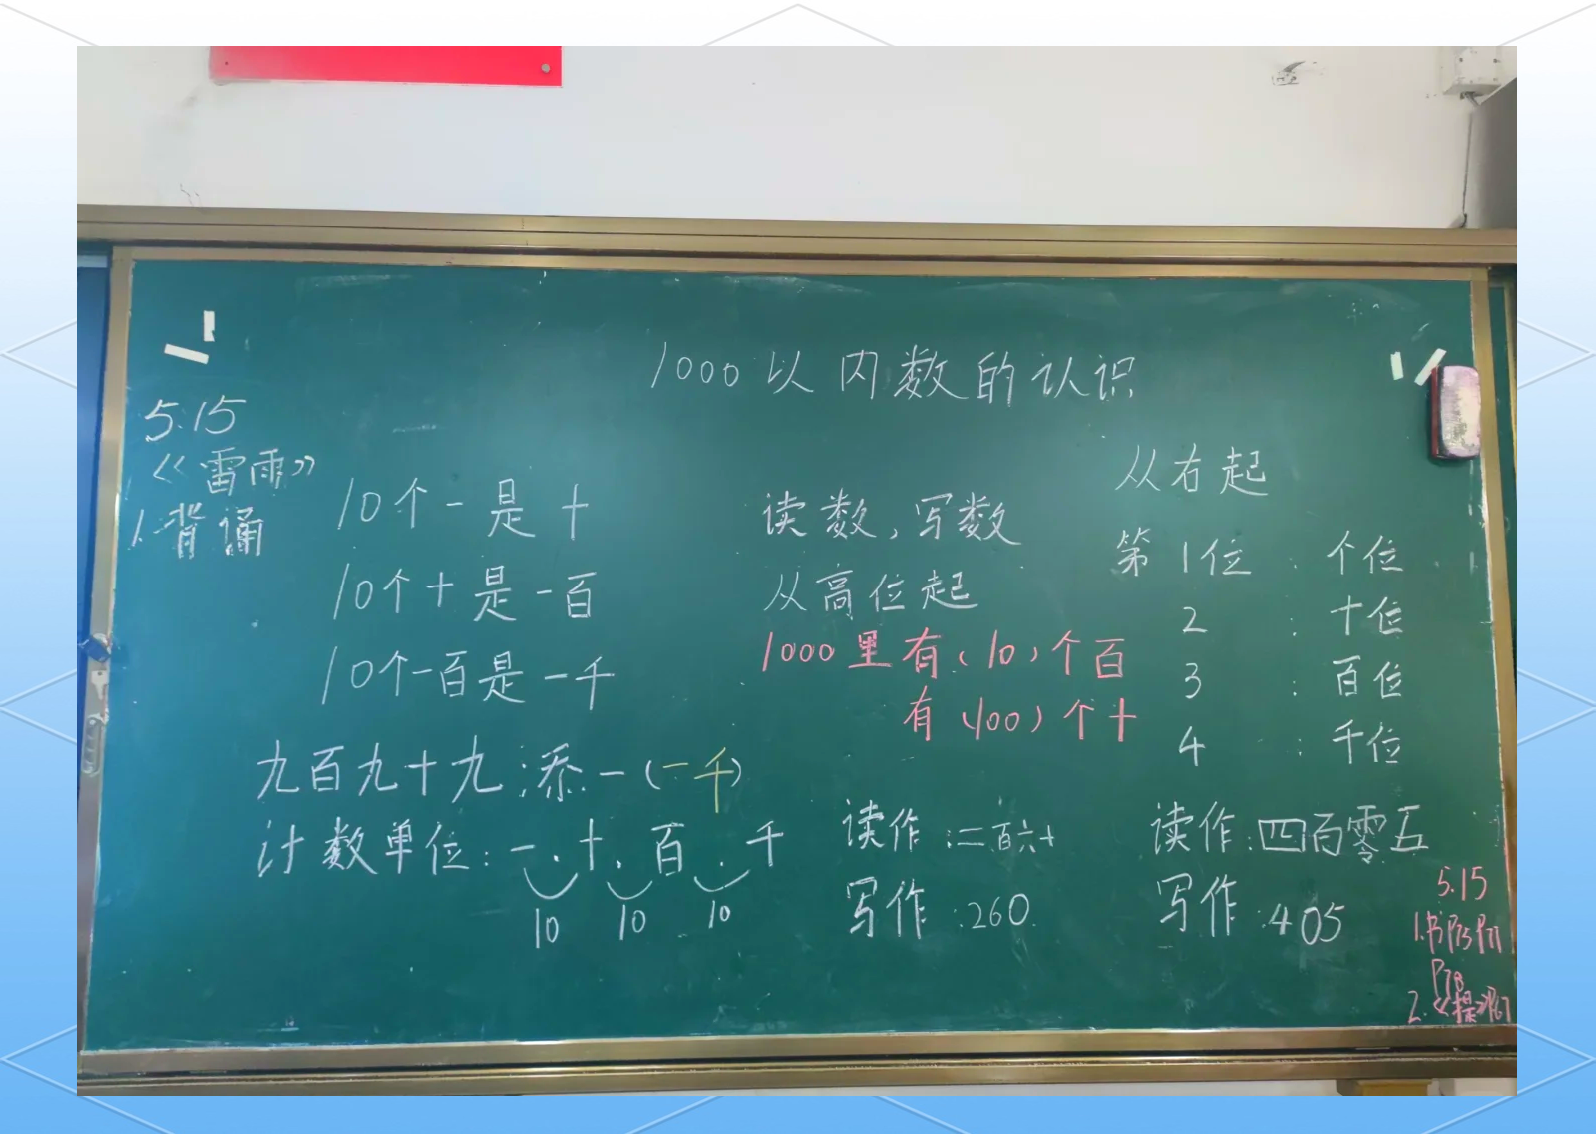 1000以内数的认识
5.15
《雷雨》
1.背诵
10个一是十
10个十是一百
10个一百是一千
九百九十九:添一(一千)
计数单位:一.十.百.千
10 10 10
读数,写数
从高位起
1000里有(10)个百
有(100)个十
读作:二百六十
写作:260
从右起
第1位:个位
2:十位
3:百位
4:千位
读作:四百零五
写作:405
5.15
1.书P75 P71
P78
2.《提》P67